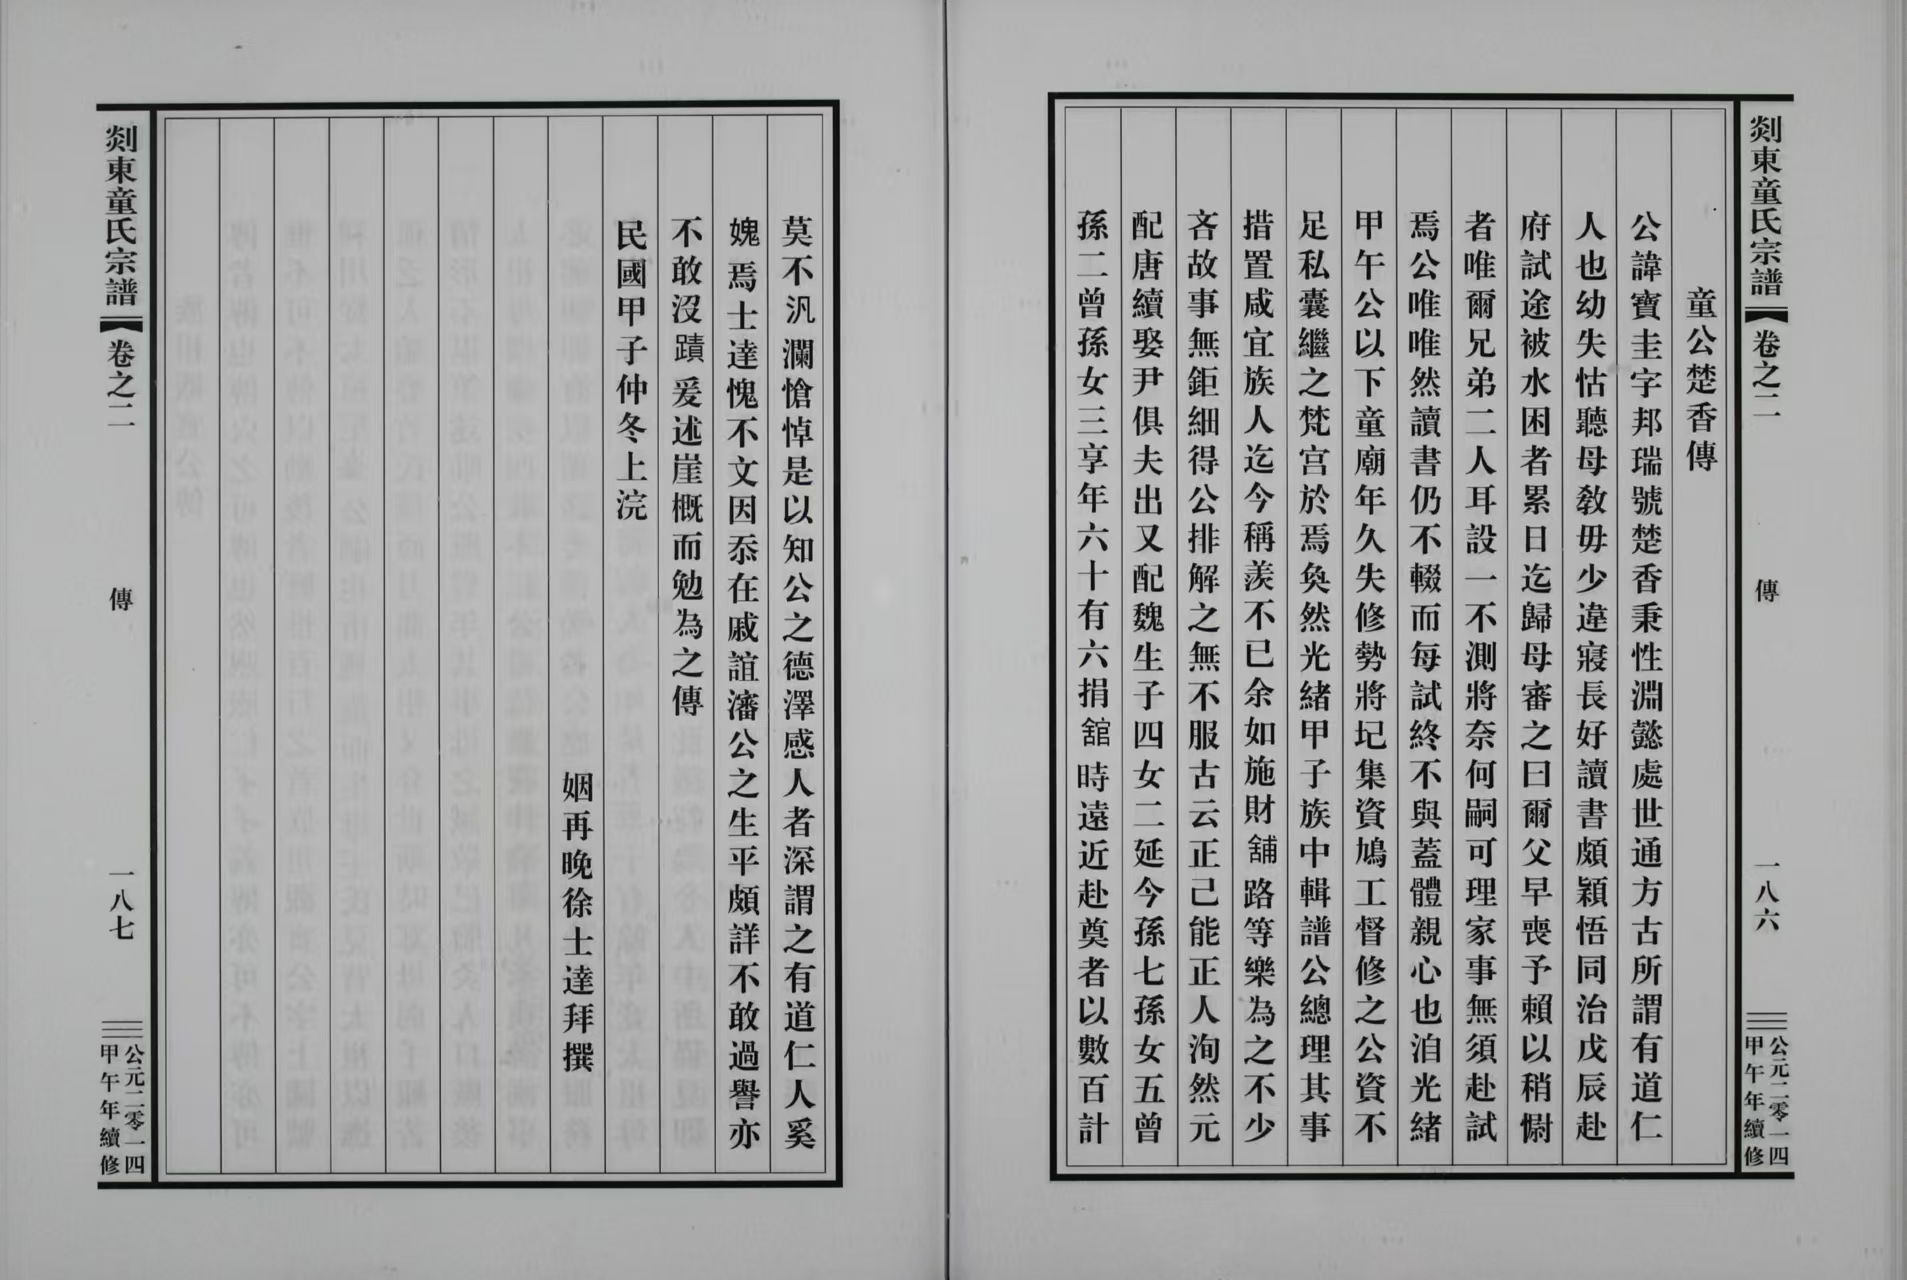 剡東童氏宗譜
卷之二
傳
一八六
公元二零一四
甲午年續修
童公楚香傳
公諱寶圭字邦瑞號楚香秉性淵懿處世通方古所謂有道仁
人也幼失怙聽母敎毋少違寢長好讀書頗穎悟同治戊辰赴
府試途被水困者累日迄歸母審之曰爾父早喪予賴以稍慰
者唯爾兄弟二人耳設一不測將奈何嗣可理家事無須赴試
焉公唯唯然讀書仍不輟而每試終不與蓋體親心也洎光緒
甲午公以下童廟年久失修勢將圮集資鳩工督修之公資不
足私囊繼之梵宮於焉奐然光緒甲子族中輯譜公總理其事
措置咸宜族人迄今稱羨不已余如施財舖路等樂為之不少
吝故事無鉅細得公排解之無不服古云正己能正人洵然元
配唐續娶尹俱夫出又配魏生子四女二延今孫七孫女五曾
孫二曾孫女三享年六十有六捐舘時遠近赴奠者以數百計
莫不汎瀾愴悼是以知公之德澤感人者深謂之有道仁人奚
媿焉士達愧不文因忝在戚誼瀋公之生平頗詳不敢過譽亦
不敢沒蹟爰述崖概而勉為之傳
民國甲子仲冬上浣
姻再晚徐士達拜撰
剡東童氏宗譜
卷之二
傳
一八七
公元二零一四
甲午年續修